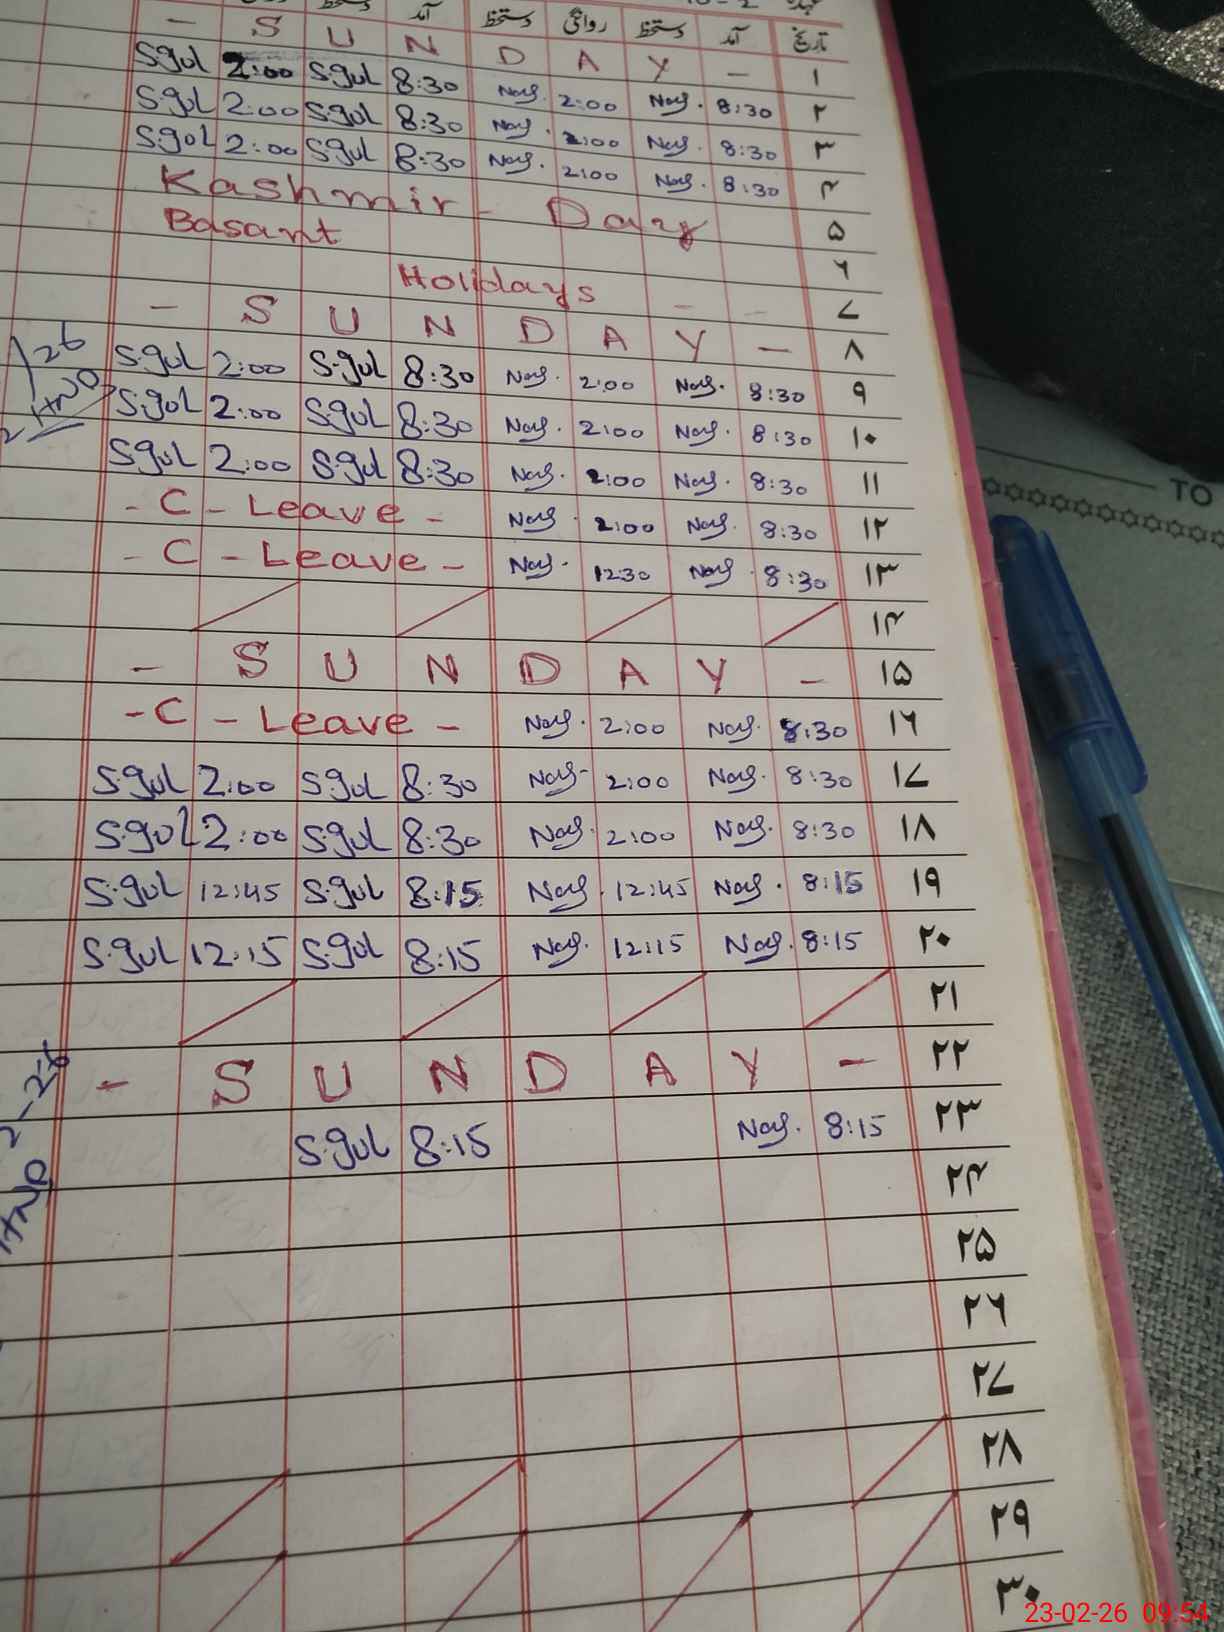 دستخط روانگی دستخط آمد تاریخ
- S U N D A Y - ۱
S.gul 2:00 S.gul 8:30 Nay. 2:00 Nay. 8:30 ۲
S.gul 2:00 S.gul 8:30 Nay. 2:00 Nay. 8:30 ۳
S.gul 2:00 S.gul 8:30 Nay. 2:00 Nay. 8:30 ۴
Kashmir - Day ۵
Basant ۶
Holidays - - ۷
- S U N D A Y - ۸
S.gul 2:00 S.gul 8:30 Nay. 2:00 Nay. 8:30 ۹
S.gul 2:00 S.gul 8:30 Nay. 2:00 Nay. 8:30 ۱۰
S.gul 2:00 S.gul 8:30 Nay. 2:00 Nay. 8:30 ۱۱
- C - Leave - Nay. 2:00 Nay. 8:30 ۱۲
- C - Leave - Nay. 12:30 Nay. 8:30 ۱۳
۱۴
- S U N D A Y - ۱۵
- C - Leave - Nay. 2:00 Nay. 8:30 ۱۶
S.gul 2:00 S.gul 8:30 Nay. 2:00 Nay. 8:30 ۱۷
S.gul 2:00 S.gul 8:30 Nay. 2:00 Nay. 8:30 ۱۸
S.gul 12:45 S.gul 8:15 Nay. 12:45 Nay. 8:15 ۱۹
S.gul 12:15 S.gul 8:15 Nay. 12:15 Nay. 8:15 ۲۰
۲۱
- S U N D A Y - ۲۲
S.gul 8:15 Nay. 8:15 ۲۳
۲۴
۲۵
۲۶
۲۷
۲۸
۲۹
۳۰
TO
23-02-26 09:54